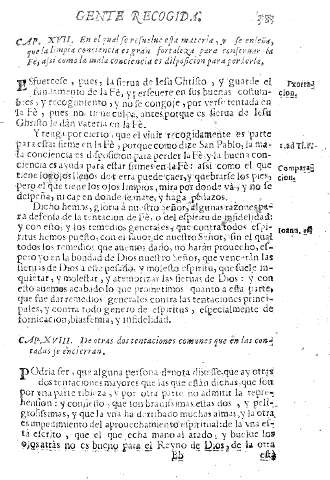 GENTE RECOGIDA. 385
CAP. XVII. En el qual se resuelve esta materia, y se enseña,
que la limpia conciencia es gran fortaleza para conservar la
Fè, assi como la mala conciencia es disposicion para perderla.
ESfuercese, pues, la sierva de Iesu Christo, y guarde el
fundamento de la Fè, y persevere en sus buenas costum-
bres, y recogimiento, y no se congoje, por verse tentada en
la Fè, pues no tiene culpa, antes porque es sierva de Iesu
Christo le dàn vateria en la Fè.
Y tenga por cierto, que el vivir recogidamente es parte
para estàr firme en la Fè, porque como dize San Pablo, la ma-
la conciencia es disposicion para perder la Fè: y la buena con-
ciencia es ayuda para estàr firmes en la Fè: assi como el que
tiene los ojos llenos de tierra puede caer, y quebrarse los pies,
pero el que tiene los ojos limpios, mira por donde và, y no se
despeña, ni cae en donde se mate, y haga pedazos.
Dicho hemos, gloria à nuestro Señor, algunas razones pa-
ra defensa de la tentacion de Fè, ò del espiritu de infidelidad:
y con esto, y los remedios generales, que contra todos espi-
ritus hemos puesto, con el favor de nuestro Señor, sin el qual
todos los remedios que avemos dado, no haràn provecho, es-
pero yo en la bondad de Dios nuestro Señor, que venceràn las
siervas de Dios à este pesado, y molesto espiritu, que suele in-
quietar, y molestar, y atemorizar las siervas de Dios: y con
esto avemos acabado lo que prometimos quanto à esta parte,
que fue dar remedios generales contra las tentaciones princi-
pales, y contra todo genero de espiritus, especialmente de
fornicacion, blasfemia, y infidelidad.
CAP. XVIII. De otras dos tentaciones comunes que en las con-
tadas se encierran.
POdria ser, que alguna persona devota dixesse, que ay otras
dos tentaciones mayores que las que estàn dichas, que son
por una parte tibieza, y por otra parte no admitir la repre-
hension: y confiesso, que son bravissimas estas dos, y peli-
grosissimas, y que la una ha derribado muchas almas, y la otra
es impedimento del aprovechamiento espiritual: de la una es-
tà escrito, que el que echa mano al arado, y buelve los
ojos atràs no es bueno para el Reyno de Dios, de la otra
Bb está
Exortacion.
1. ad Ti.
Comparacion.
Ioann. 15